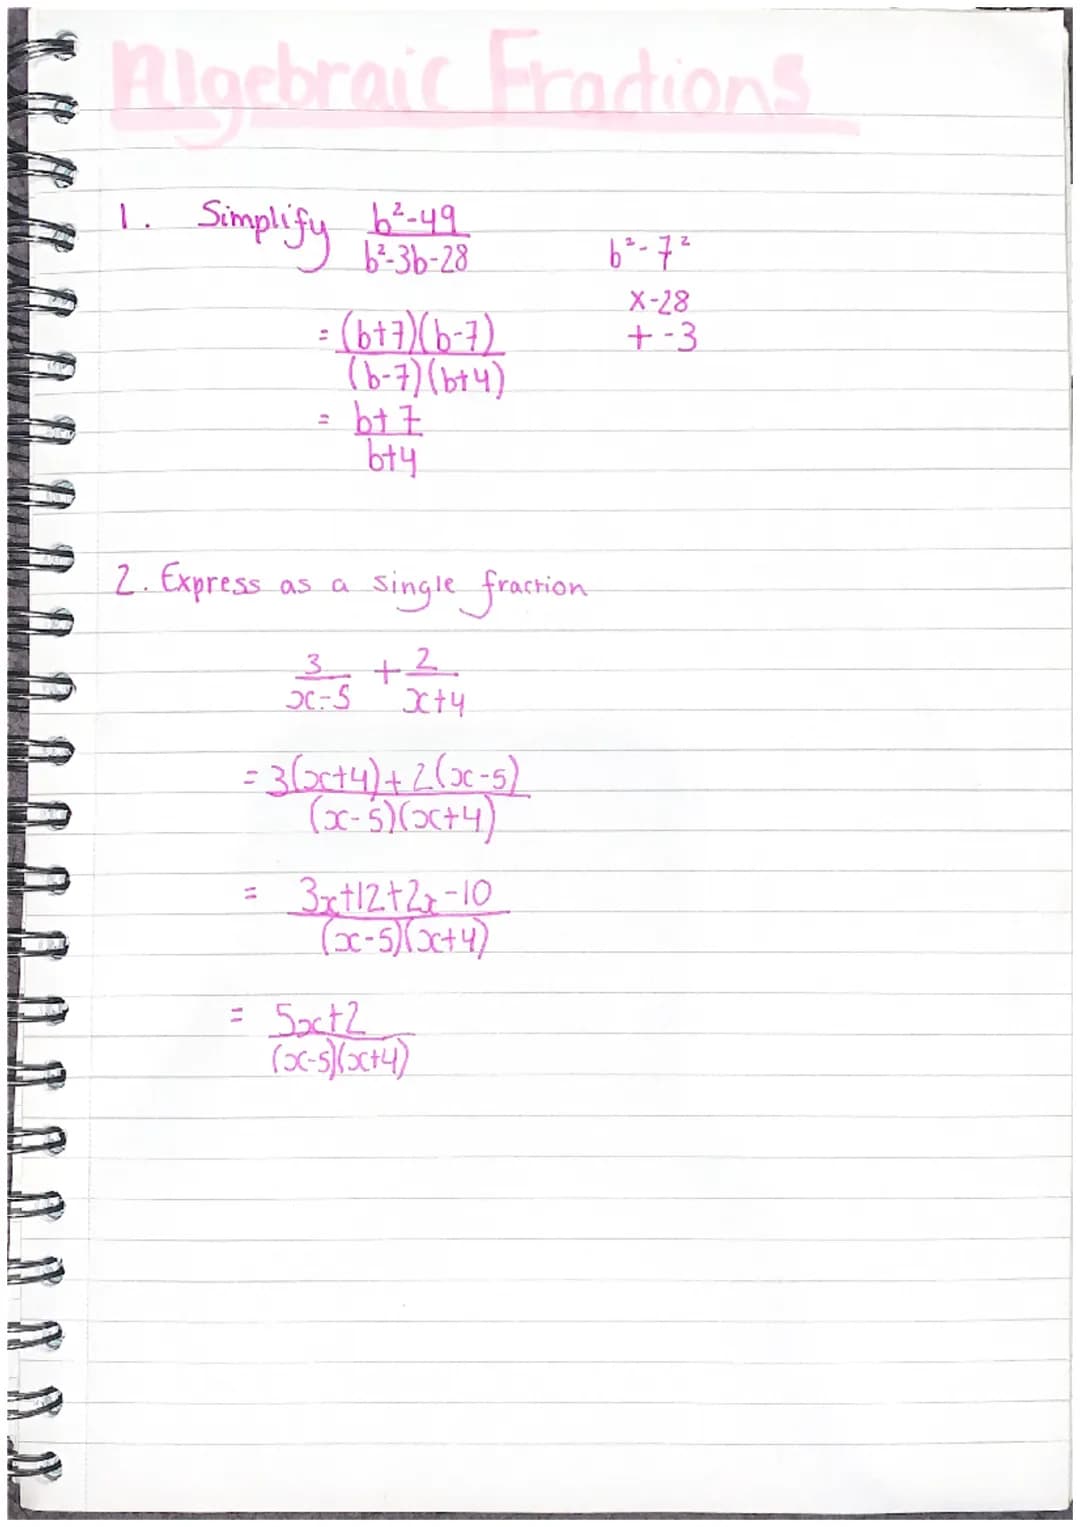 Algebraic Fractions
1. Simplify b²-49 / b²-3b-28
b²-7²
x-28
+ -3
= (b+7)(b-7) / (b-7)(b+4)
= b+7 / b+4
2. Express as a single fraction
3 / x-5 + 2 / x+4
= 3(x+4)+2(x-5) / (x-5)(x+4)
= 3x+12+2x-10 / (x-5)(x+4)
= 5x+2 / (x-5)(x+4)